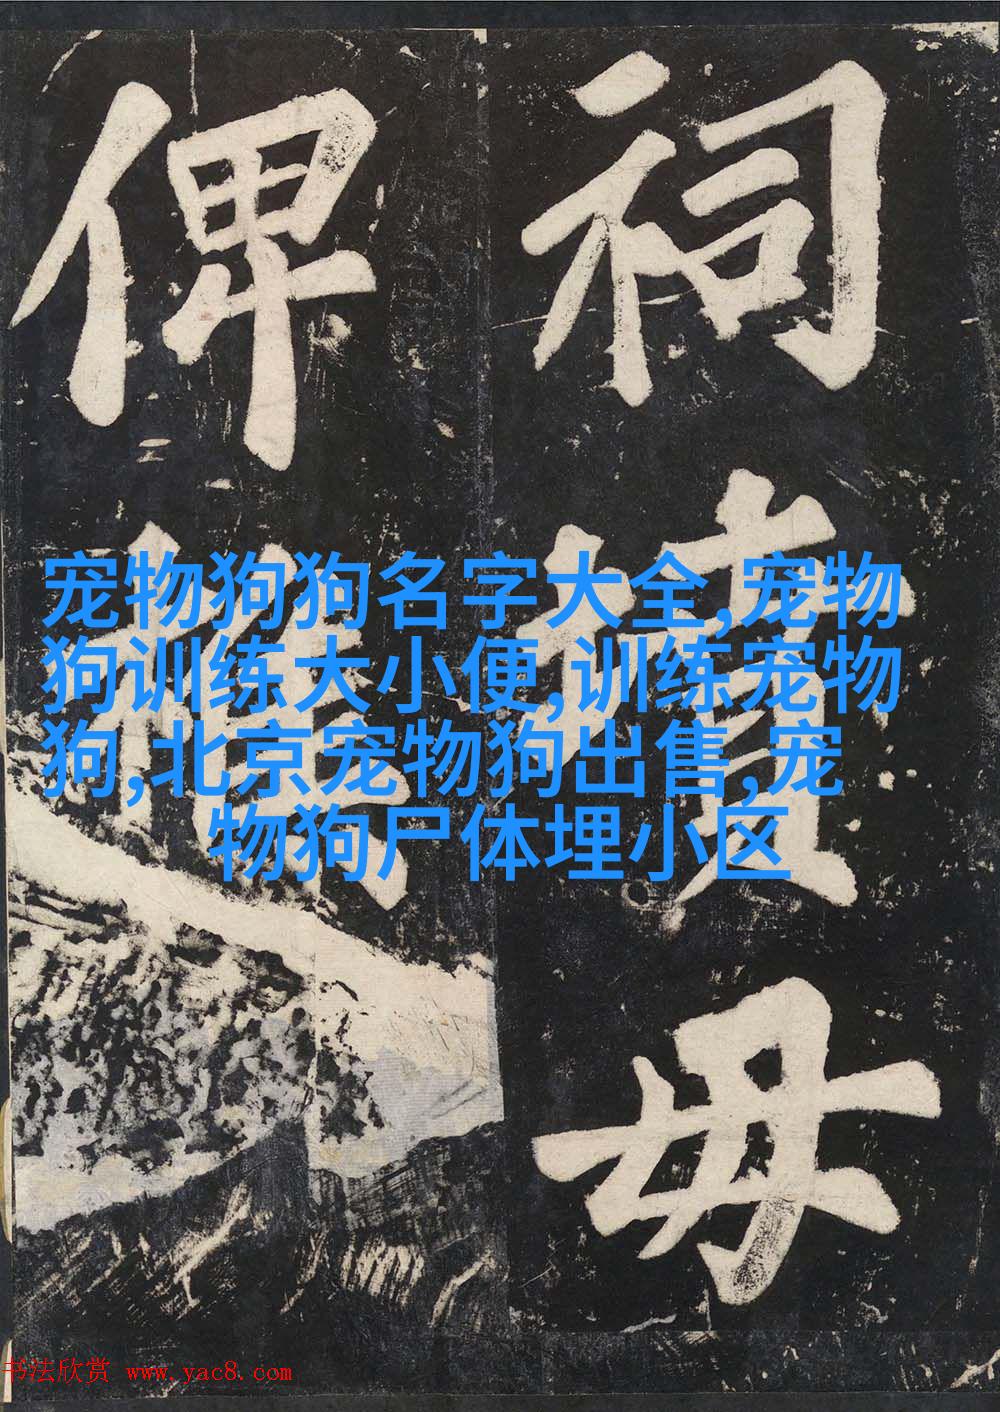 祠
堉
毋
俾
宠物狗狗名字大全,宠物
狗训练大小便,训练宠物
狗,北京宠物狗出售,宠
物狗尸体埋小区
书法欣赏 www.yac8.com